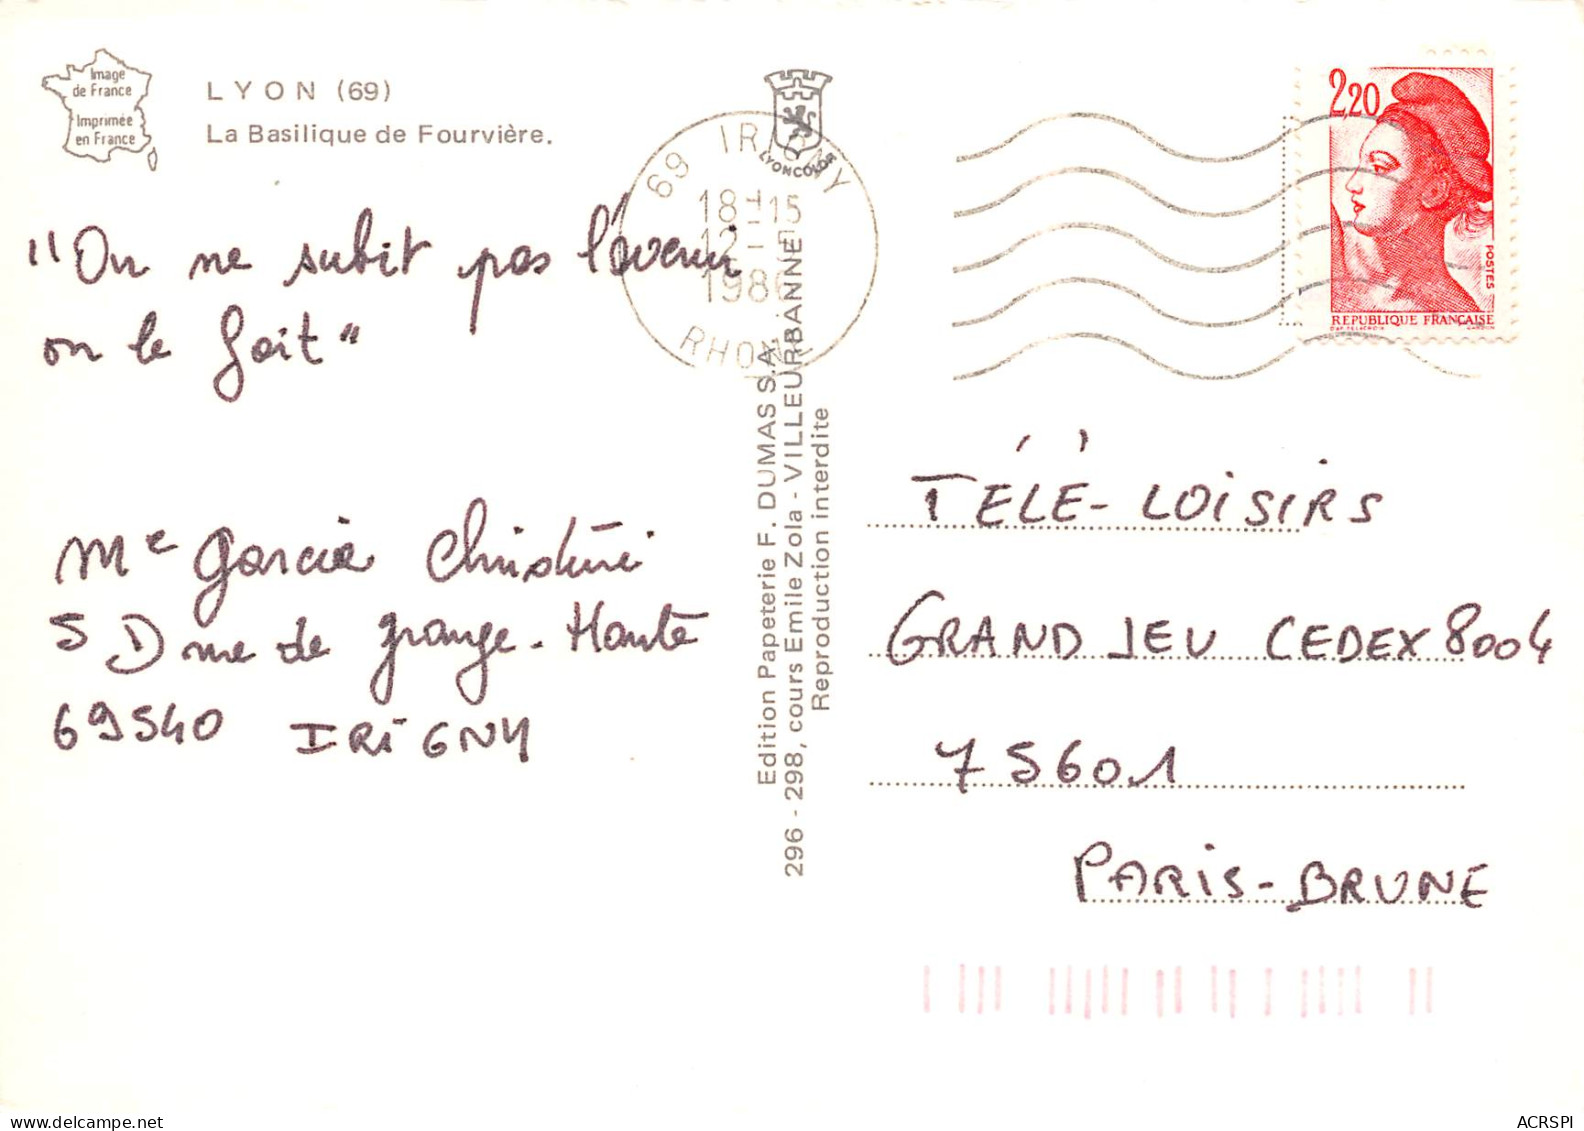 Image
de France
Imprimée
en France
LYON (69)
La Basilique de Fourvière.
"On ne subit pas l'avenir
on le fait"
Me Garcia Christine
5 D rue de grange-Haute
69540 IRIGNY
LYONCOLOR
69 IRIGNY
18H15
12 -
1986
RHONE
Edition Papeterie F. DUMAS S.A.
296 - 298, cours Emile Zola - VILLEURBANNE
Reproduction interdite
2,20
POSTES
REPUBLIQUE FRANÇAISE
D'AP. DELACROIX GANDON
TÉLÉ-LOISIRS
GRAND JEU CEDEX 8004
75601
PARIS-BRUNE
ACRSPI